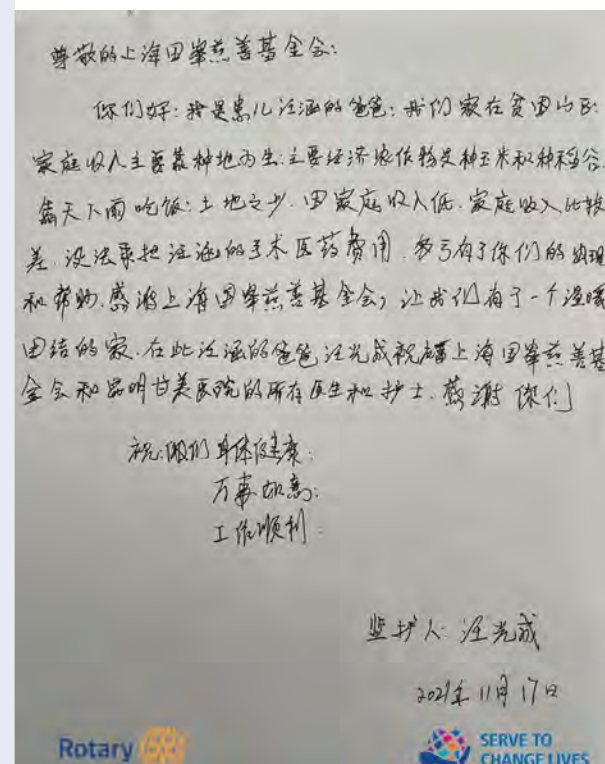 尊敬的上海田峯慈善基金会:
你们好:我是患儿汪涵的爸爸:我们家在贫困山区:
家庭收入主要靠种地为生:主要经济农作物是种玉米和种稻谷.
靠天下雨吃饭:土地之少.因家庭收入低.家庭收入比较
差.没法承担汪涵的手术医药费用.多亏有了你们的出现
和帮助.感谢上海田峯慈善基金会,让我们有了一个温暖
团结的家.在此汪涵的爸爸汪光成祝福上海田峯慈善基
金会和昆明甘美医院的所有医生和护士.感谢你们
祝:你们身体健康:
万事如意:
工作顺利.
监护人:汪光成
2021年11月17日
Rotary
SERVE TO
CHANGE LIVES